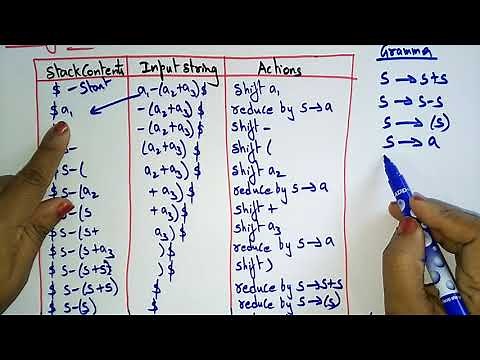 Grammar
S → S+S
S → S-S
S → (S)
S → a
Stack Contents Input string Actions
$ - Start a₁-(a₂+a₃)$ Shift a₁
$a₁ -(a₂+a₃)$ reduce by S→a
-(a₂+a₃)$ Shift -
S- (a₂+a₃)$ Shift (
$ S-( a₂+a₃)$ Shift a₂
$ S-(a₂ +a₃)$ reduce by S→a
$ S-(S +a₃)$ Shift +
$ S-(S+ a₃)$ Shift a₃
$ S-(S+a₃ )$ reduce by S→a
$ S-(S+S )$ Shift )
$ S-(S+S) $ reduce by S→S+S
$ S-(S) $ reduce by S→(S)